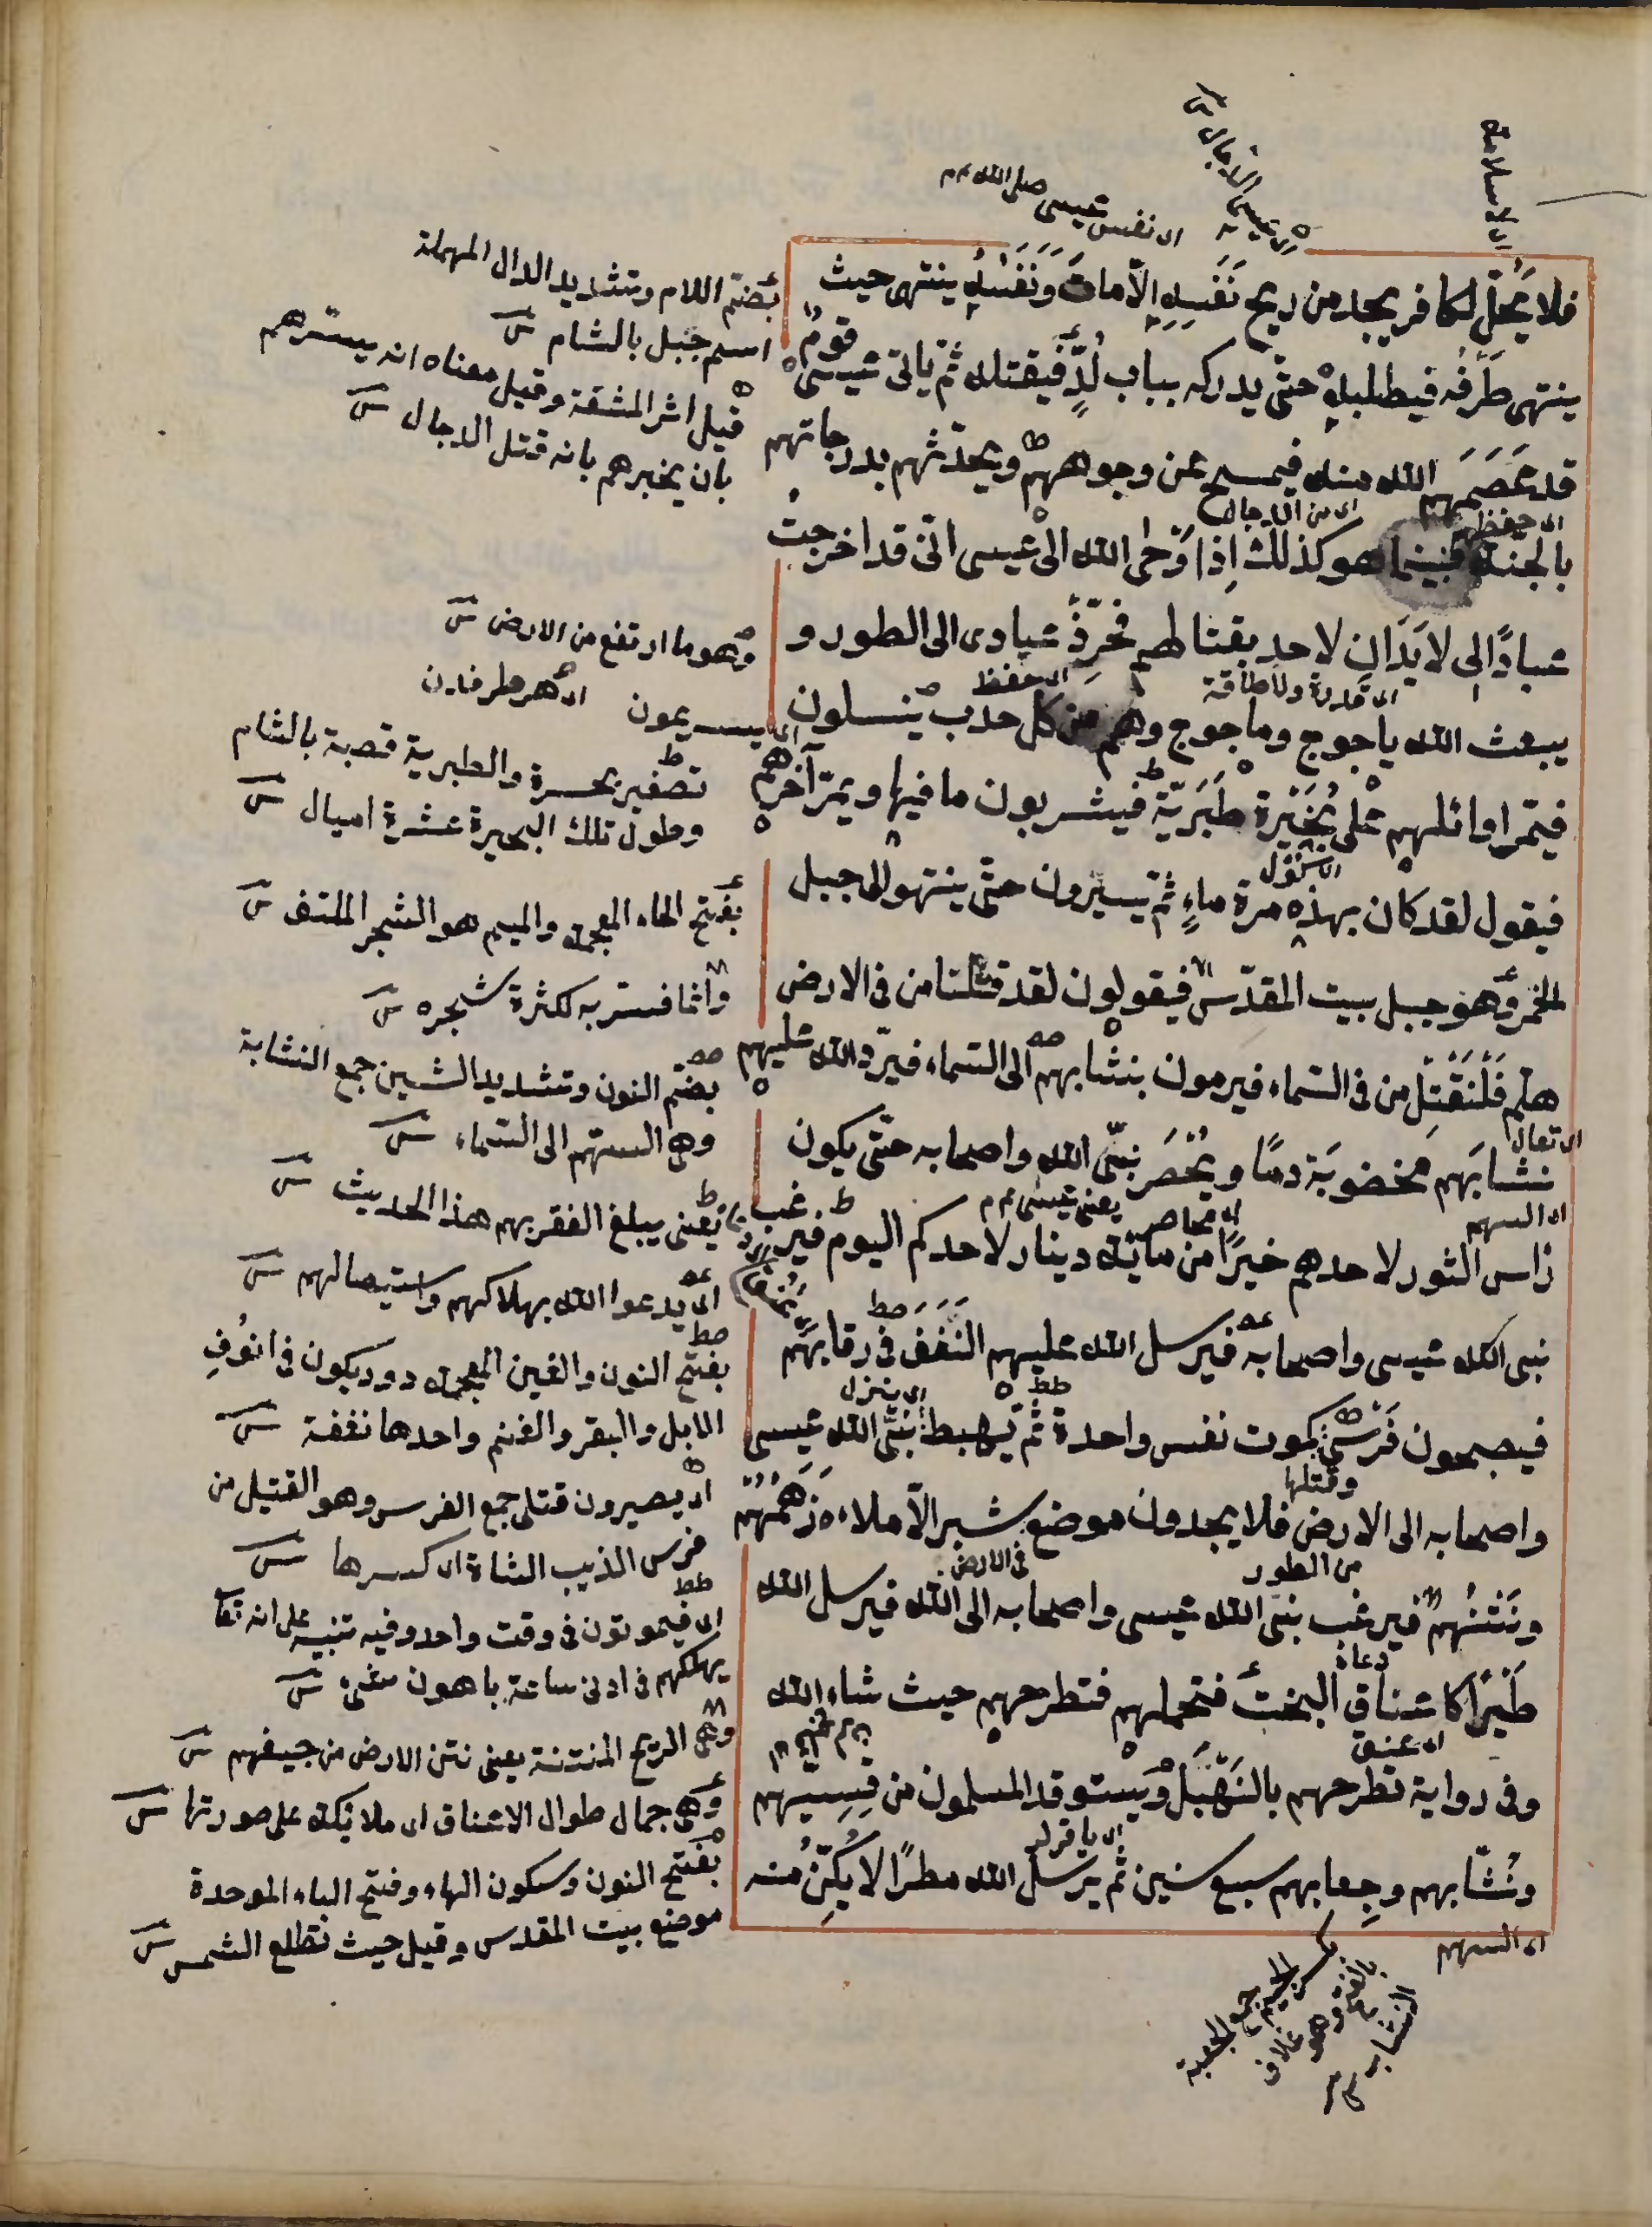 اى نفس عيسى صلى الله
فلا يحل لكافر يجد من ريح نَفَسِهِ الّا مات ونَفَسُهُ ينتهى حيث
ينتهى طَرَفُه فيطلبه حتّى يدركه بباب لُدٍّ فيقتله ثمّ ياتى عيسى قومٌ
قد عَصَمَهم الله منه فيمسح عن وجوههم ويحدّثهم بدرجاتهم
اى حفظهم
اى من الدجال
بالجنة فبينما هو كذلك اِذا وَحى الله الى عيسى انّى قد اخرجتُ
عبادًا لى لا يَدَانِ لاحد بقتالهم فحَرِّذْ عبادى الى الطور و
اى قدرة ولا طاقة
اى حفظ
يبعث الله ياجوج وماجوج وهم من كل حدب ينسلون
فيمّر اوائلهم على بُحَيْرة طَبَرِيّة فيشربون ما فيها ويمرّ آخرهم
فيقول لقد كان بهذه مرة ماءٍ ثمّ يسيرون حتّى ينتهوا الى جبل
الخمر وهو جبل بيت المقدّس فيقولون لقد قتلنا من فى الارض
هلم فَلْنَقْتِلْ من فى السّماء فيرمون بنشّابهم الى السّماء فيردّ الله عليهم
اى تعال
نشابَهم مخضوبَة دمًا ويُحْصَر نبىّ الله واصحابه حتّى يكون
اى السهم
يعنى عيسى
راس الثور لاحدهم خيرًا من مائة دينار لاحدكم اليوم فيرغب
نبى الله عيسى واصحابه فيرسل الله عليهم النَغَفَ فى رقابهم
فيصبحون فَرْسى كموت نفس واحدة ثمّ يهبط نبىّ الله عيسى
اى ينزل
وقتلها
واصحابه الى الارض فلا يجدون موضع شبر الّا ملاءه زَهَمُهُم
من الطور
فى الارض
ونَتْنُهُم فيرغب نبىّ الله عيسى واصحابه الى الله فيرسل الله
دعاه
طَيْرًا كاعناق البخت فتحملهم فتطرحهم حيث شاء الله
اى عنق
وفى رواية تطرحهم بالنَهْبَل ويَستوقد المسلمون من قِسِيّهم
ونُشّابهم وجِعابهم سبع سنين ثمّ يرسل الله مطرًا لا يُكِنّ منه
اى السهم
بكسر الجيم جمع الجعبة
بالفتح وهو غلاف
النشاب
بضم اللام وتشديد الدال المهملة
اسم جبل بالشام
قيل اثر المشقة وقيل معناه انه يبشرهم
بان يخبرهم بانه قتل الدجال
وهو ما ارتفع من الارض
اى يسرعون
تصغير بحرة والطبرية قصبة بالشام
وطول تلك البحيرة عشرة اميال
بفتح الخاء المعجمة والميم هو الشجر الملتف
وانما فسر به لكثرة شجره
بضم النون وتشديد الشين جمع النشابة
وهى السهم الى السماء
يعنى يبلغ الفقر بهم هذا الحديث
اى يدعوا الله بهلاكهم واستيصالهم
بفتح النون والغين المعجمة دود يكون فى انُوفِ
الابل والبقر والغنم واحدها نغفة
اى يصيرون قتلى جمع الفرس وهو القتيل من
فرس الذيب الشاة اى كسرها
اى فيموتون فى وقت واحد وفيه تنبيه على انه تعا
يهلكهم فى ادنى ساعة باهون شىء
وهى الريح المنتنة يعنى نتن الارض من جيفهم
وهى جمال طوال الاعناق اى ملائكة على صورتها
بفتح النون وسكون الهاء وفتح الباء الموحدة
موضع ببيت المقدس وقيل حيث تطلع الشمس